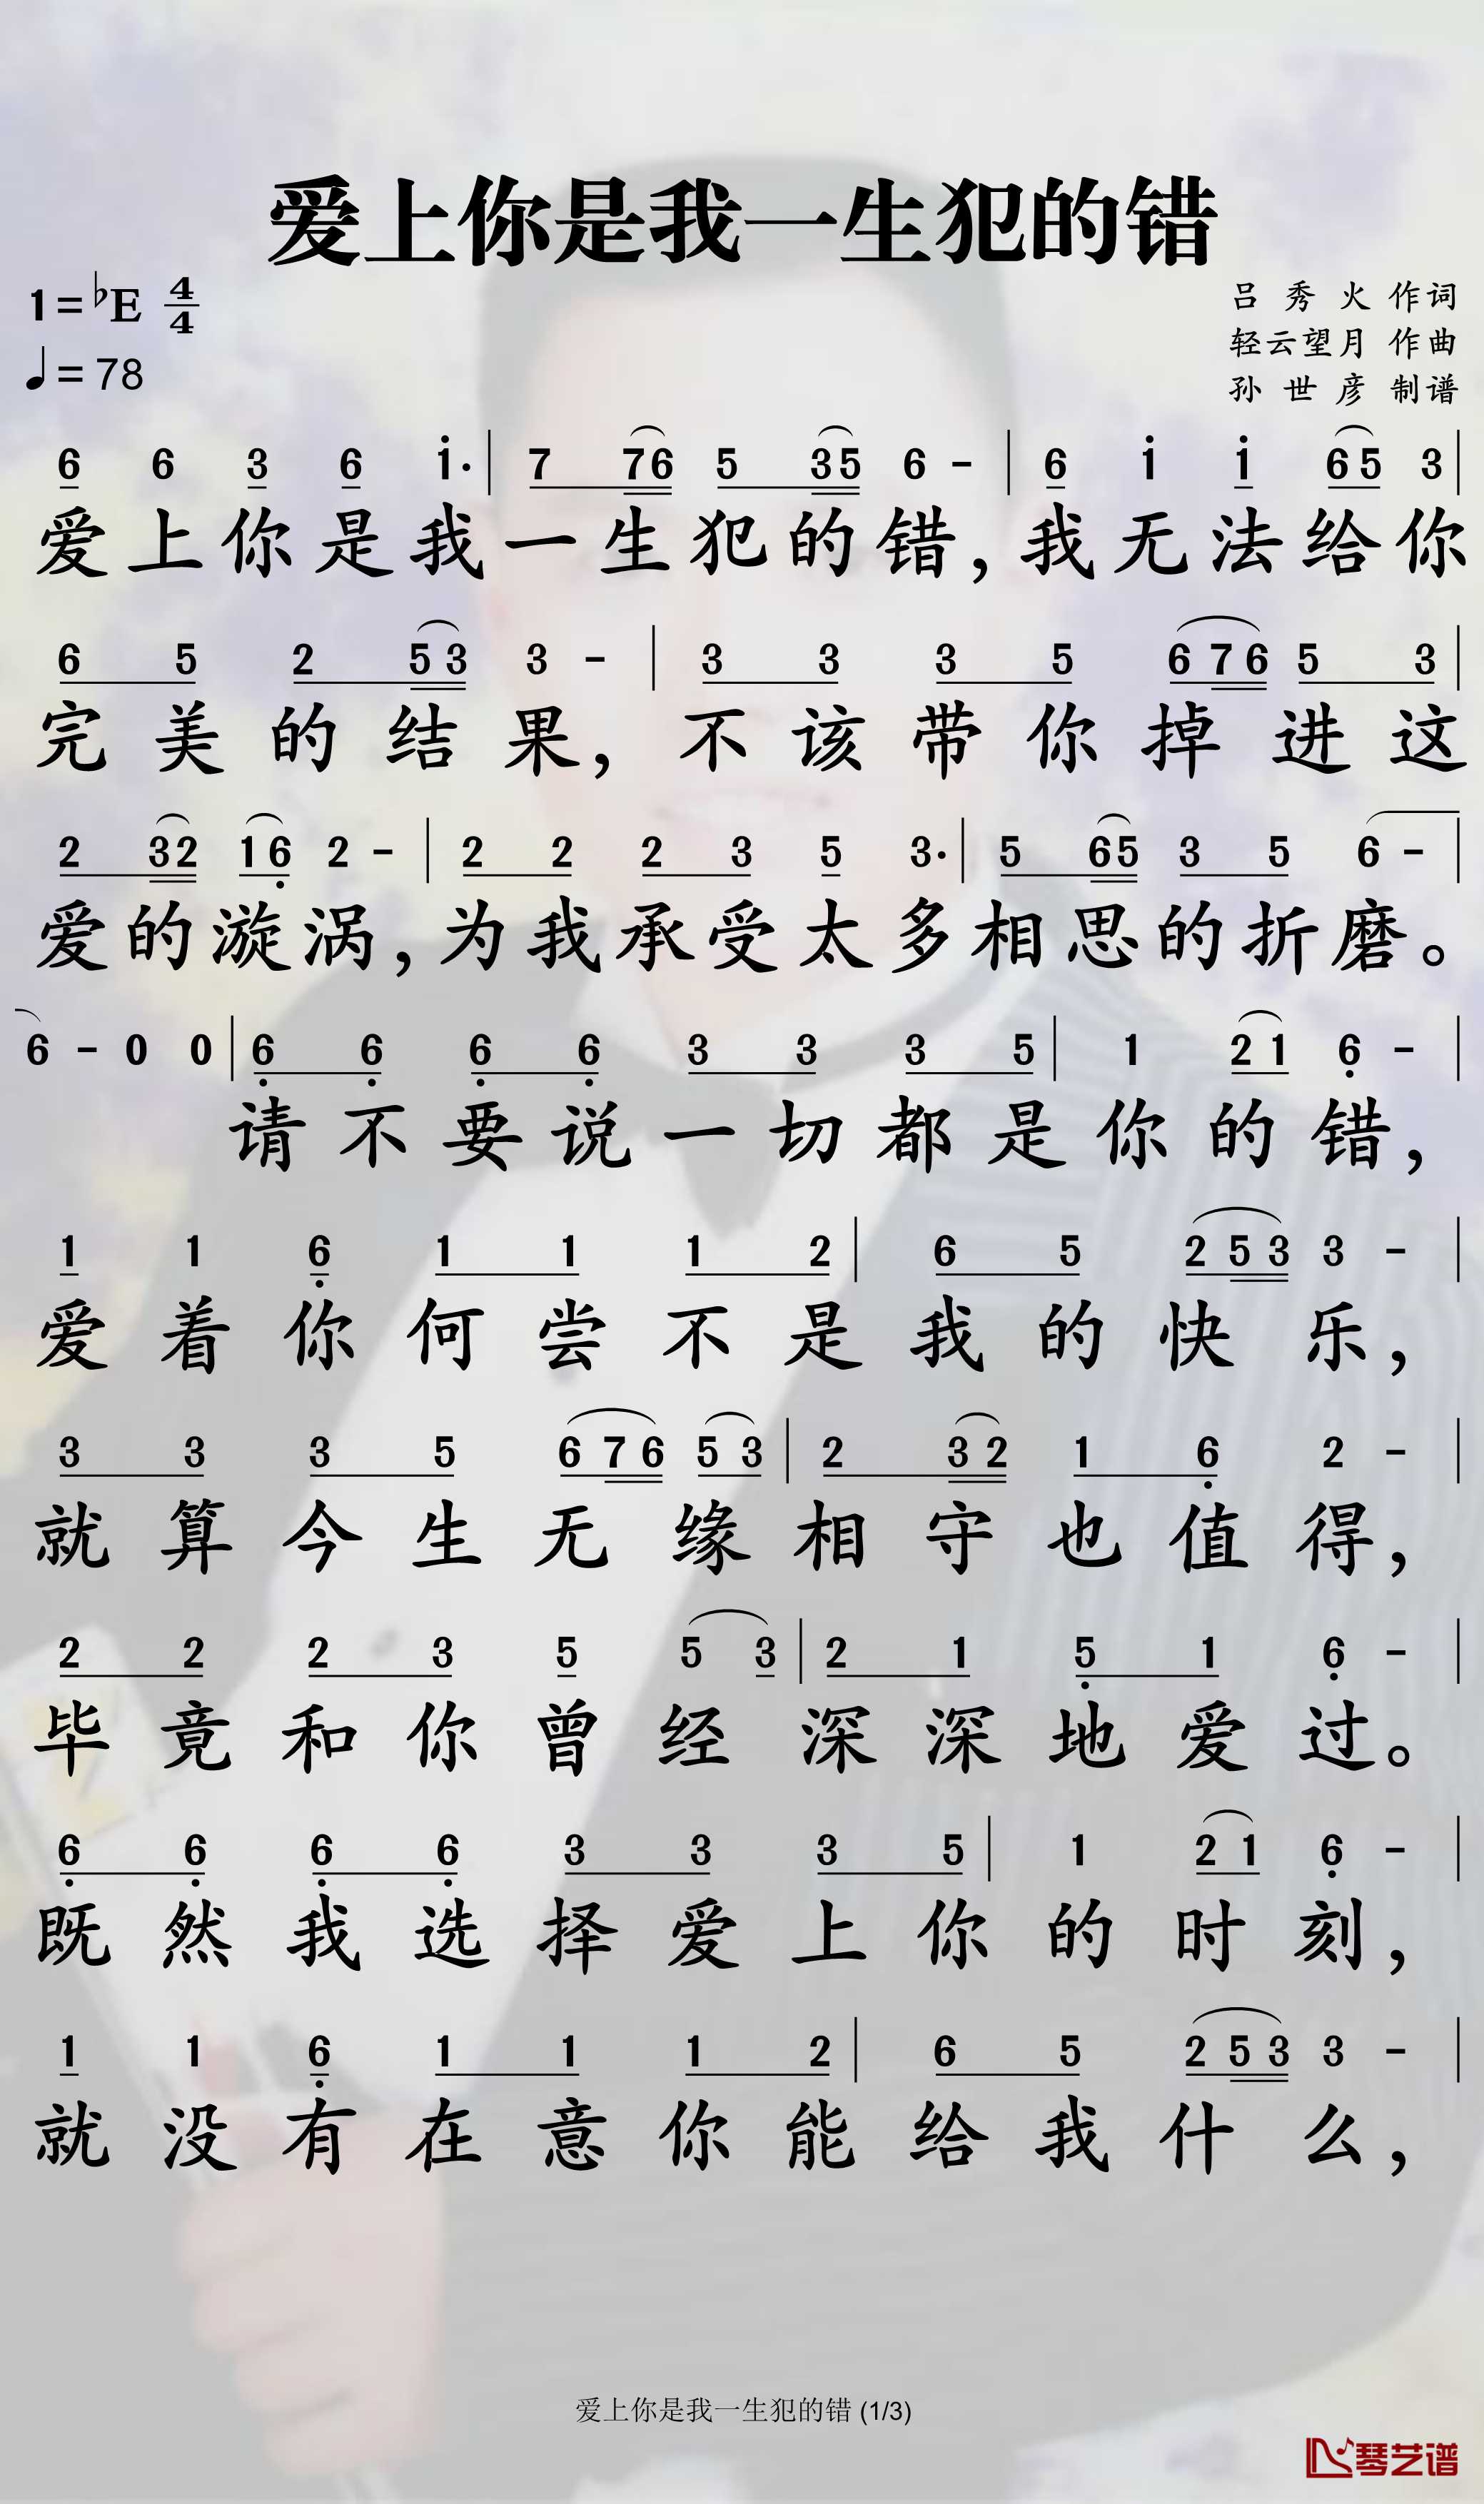 爱上你是我一生犯的错
1=♭E 4/4
吕秀火 作词
♩=78
轻云望月 作曲
孙世彦 制谱
6 6 3 6 i· | 7 76 5 35 6 - | 6 i i 65 3 |
爱上你是我一生犯的错，我无法给你
6 5 2 53 3 - | 3 3 3 5 676 5 3 |
完美的结果，不该带你掉进这
2 32 16 2 - | 2 2 2 3 5 3· | 5 65 3 5 6 - |
爱的漩涡，为我承受太多相思的折磨。
6 - 0 0 | 6 6 6 6 3 3 3 5 | 1 21 6 - |
请不要说一切都是你的错，
1 1 6 1 1 1 2 | 6 5 253 3 - |
爱着你何尝不是我的快乐，
3 3 3 5 676 53 | 2 32 1 6 2 - |
就算今生无缘相守也值得，
2 2 2 3 5 5 3 | 2 1 5 1 6 - |
毕竟和你曾经深深地爱过。
6 6 6 6 3 3 3 5 | 1 21 6 - |
既然我选择爱上你的时刻，
1 1 6 1 1 1 2 | 6 5 253 3 - |
就没有在意你能给我什么，
爱上你是我一生犯的错 (1/3)
琴艺谱